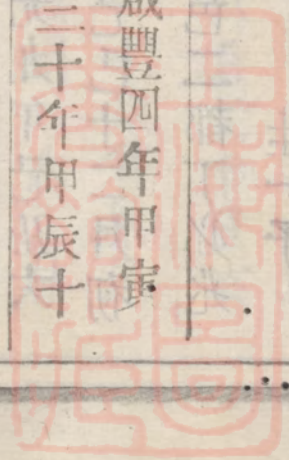 咸豐四年甲寅
三十年甲辰十